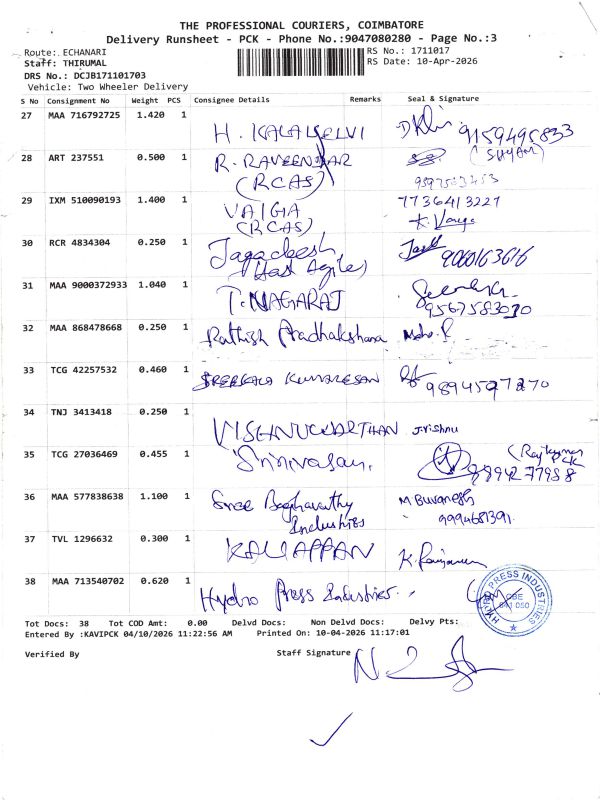 THE PROFESSIONAL COURIERS, COIMBATORE
Delivery Runsheet - PCK - Phone No.:9047080280 - Page No.:3
Route: ECHANARI
RS No.: 1711017
Staff: THIRUMAL
RS Date: 10-Apr-2026
DRS No.: DCJB171101703
Vehicle: Two Wheeler Delivery
S No Consignment No Weight PCS Consignee Details Remarks Seal & Signature
27 MAA 716792725 1.420 1 H. KALAISELVI 9159495833
(SHYAM)
28 ART 237551 0.500 1 R. RAVEENDAR
(RCAS)
29 IXM 510090193 1.400 1 VAIGA 7736413227
(RCAS)
30 RCR 4834304 0.250 1 Jagadeesh 9060163616
31 MAA 9000372933 1.040 1 T. NAGARAJ
9567583030
32 MAA 868478668 0.250 1 Rathish Pradhakshana
33 TCG 42257532 0.460 1 SREEKALA KUMARESAN 9894597270
34 TNJ 3413418 0.250 1 VISHNUVARTHAN J.vishnu
35 TCG 27036469 0.455 1 Srinivasan. (Rajkumar
36 MAA 577838638 1.100 1 Sree Bagavathy M Buvanesh
Industries 9994681391.
37 TVL 1296632 0.300 1 KALIAPPAN
38 MAA 713540702 0.620 1 Hydro Press Industries.
HYDRO PRESS INDUSTRIES
CBE
641 050
Tot Docs: 38 Tot COD Amt: 0.00 Delvd Docs: Non Delvd Docs: Delvy Pts:
Entered By :KAVIPCK 04/10/2026 11:22:56 AM Printed On: 10-04-2026 11:17:01
Verified By Staff Signature